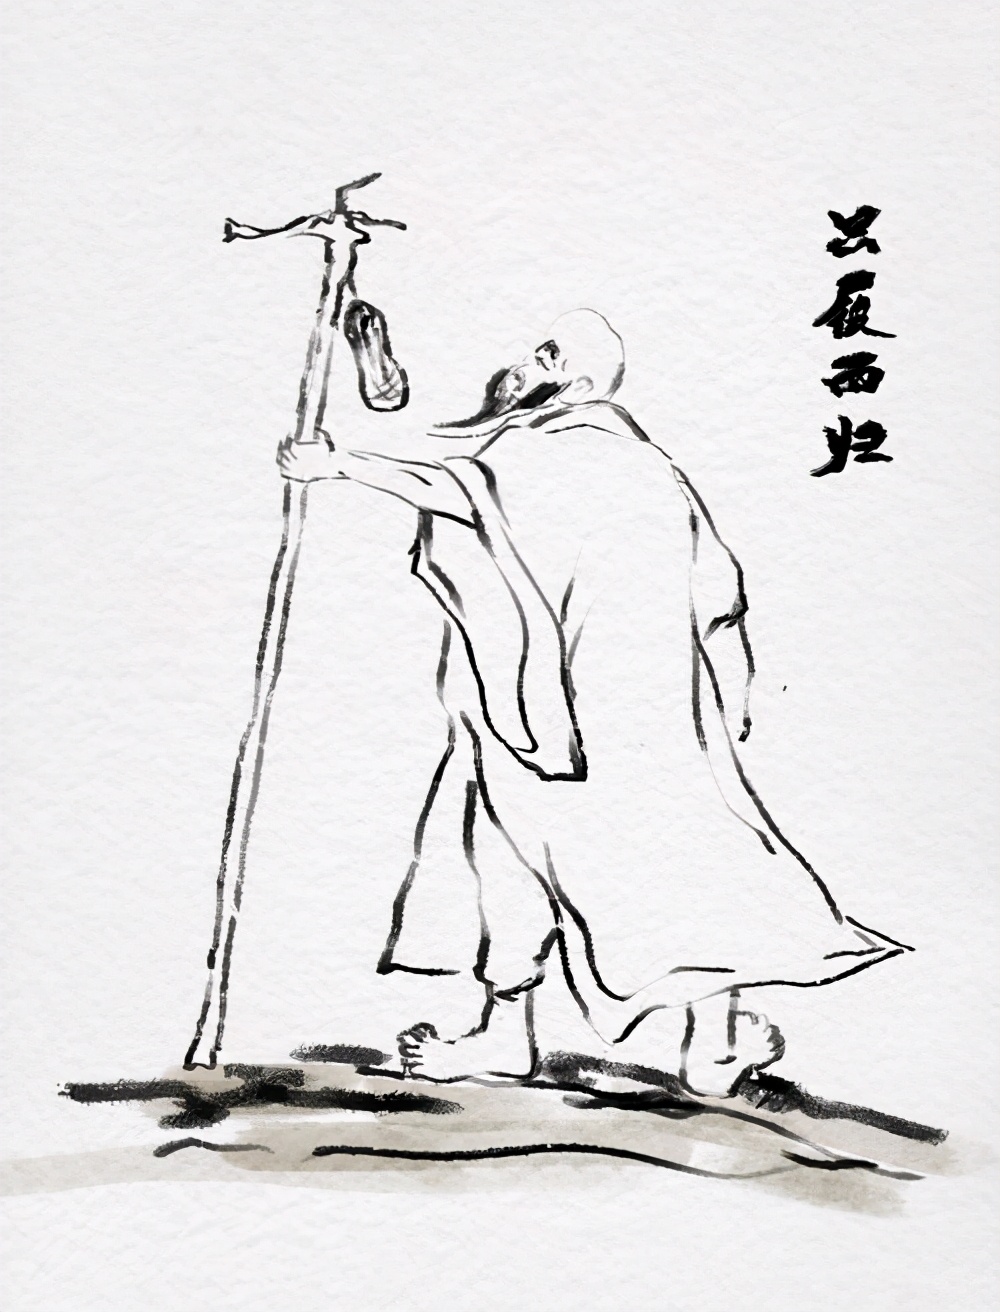 只履西归